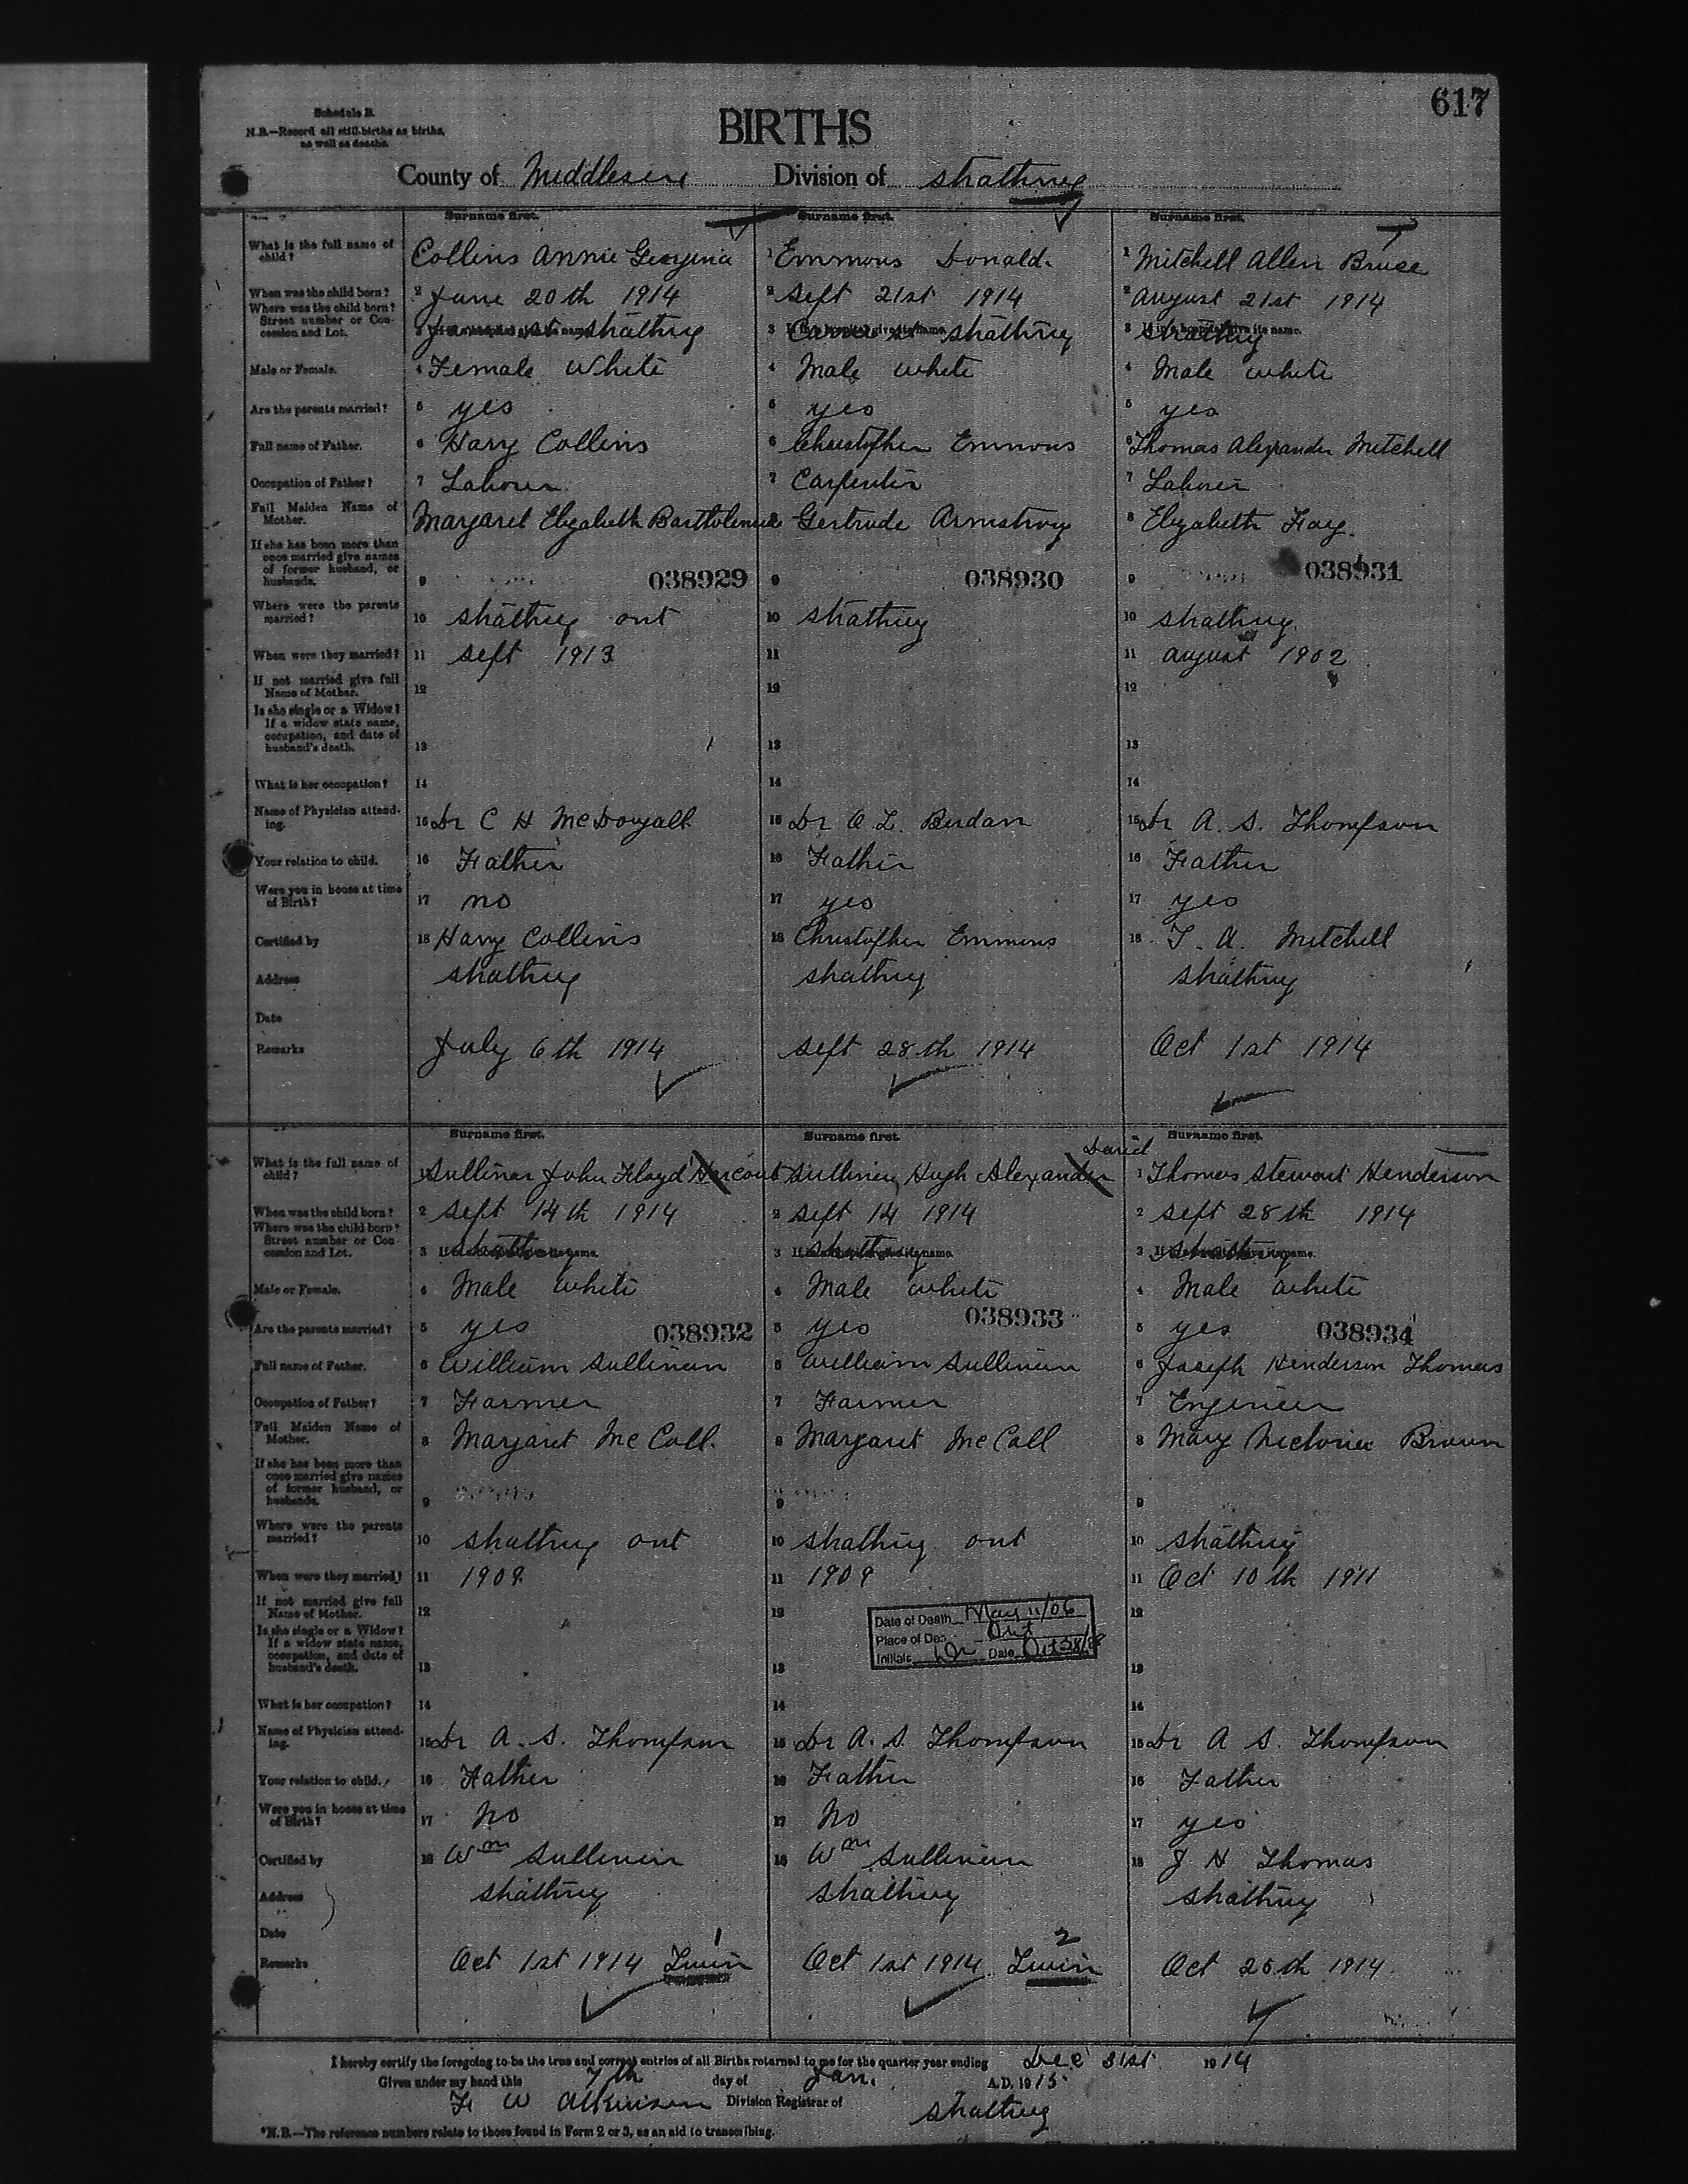 617
Schedule B.
N.B.—Record all still-births as births, as well as deaths.
BIRTHS
County of Middlesex Division of Strathroy
Surname first. Surname first. Surname first.
What is the full name of child? Collins Annie Georgina 1 Emmons Donald 1 Mitchell Allen Bruce
When was the child born? 2 June 20th 1914 2 Sept 21st 1914 2 August 21st 1914
Where was the child born? Street number or Concession and Lot. 3 st Strathroy 3 If in a hospital give its name. st Strathroy 3 If in a hospital give its name. Strathroy
Male or Female. 4 Female White 4 Male white 4 Male white
Are the parents married? 5 yes 5 yes 5 yes
Full name of Father. 6 Harry Collins 6 Christopher Emmons 6 Thomas Alexander Mitchell
Occupation of Father? 7 Laborer 7 Carpenter 7 Laborer
Full Maiden Name of Mother. Margaret Elizabeth 8 Gertrude Armstrong 8 Elizabeth
If she has been more than once married give names of former husband, or husbands. 9 038929 9 038930 9 038931
Where were the parents married? 10 Strathroy ont 10 Strathroy 10 Strathroy
When were they married? 11 Sept 1913 11 11 August 1902
If not married give full Name of Mother. 12 12 12
Is she single or a Widow? If a widow state name, occupation, and date of husband's death. 13 13 13
What is her occupation? 14 14 14
Name of Physician attending. 15 Dr C H McDougall 15 Dr O L Berdan 15 Dr A. S. Thompson
Your relation to child. 16 Father 16 Father 16 Father
Were you in house at time of Birth? 17 no 17 yes 17 yes
Certified by 18 Harry Collins 18 Christopher Emmons 18 T. A. Mitchell
Address Strathroy Strathroy Strathroy
Date
Remarks July 6th 1914 Sept 28th 1914 Oct 1st 1914
Surname first. Surname first. Surname first.
David
What is the full name of child? 1 Sullivan John Floyd Sullivan Hugh Alexander 1 Thomas Stewart Henderson
When was the child born? 2 Sept 14th 1914 2 Sept 14 1914 2 Sept 28th 1914
Where was the child born? Street number or Concession and Lot. 3 Strathroy 3 Strathroy 3 Strathroy
Male or Female. 4 Male white 4 Male white 4 Male white
Are the parents married? 5 yes 038932 5 yes 038933 5 yes 038934
Full name of Father. 6 William Sullivan 6 William Sullivan 6 Joseph Henderson Thomas
Occupation of Father? 7 Farmer 7 Farmer 7 Engineer
Full Maiden Name of Mother. 8 Margaret McCall 8 Margaret McCall 8 Mary Victoria Brown
If she has been more than once married give names of former husband, or husbands. 9 9 9
Where were the parents married? 10 Strathroy ont 10 Strathroy ont 10 Strathroy
When were they married? 11 1909 11 1909 11 Oct 10th 1911
If not married give full Name of Mother. 12 12 12
Date of Death May 11/06
Place of Ont
Initials Date
Is she single or a Widow? If a widow state name, occupation, and date of husband's death. 13 13 13
What is her occupation? 14 14 14
Name of Physician attending. 15 Dr A. S. Thompson 15 Dr A. S. Thompson 15 Dr A S. Thompson
Your relation to child. 16 Father 16 Father 16 Father
Were you in house at time of Birth? 17 No 17 No 17 yes
Certified by 18 Wm Sullivan 18 Wm Sullivan 18 J H Thomas
Address Strathroy Strathroy Strathroy
Date 1 2
Remarks Oct 1st 1914 Twin Oct 1st 1914 Twin Oct 1914
I hereby certify the foregoing to be the true and correct entries of all Births returned to me for the quarter year ending Dec 31st 1914
Given under my hand this 7th day of Jan. A.D. 1915
F W Atkinson Division Registrar of Strathroy
*N.B.—The reference numbers relate to those found in Form 2 or 3, as an aid to transcribing.